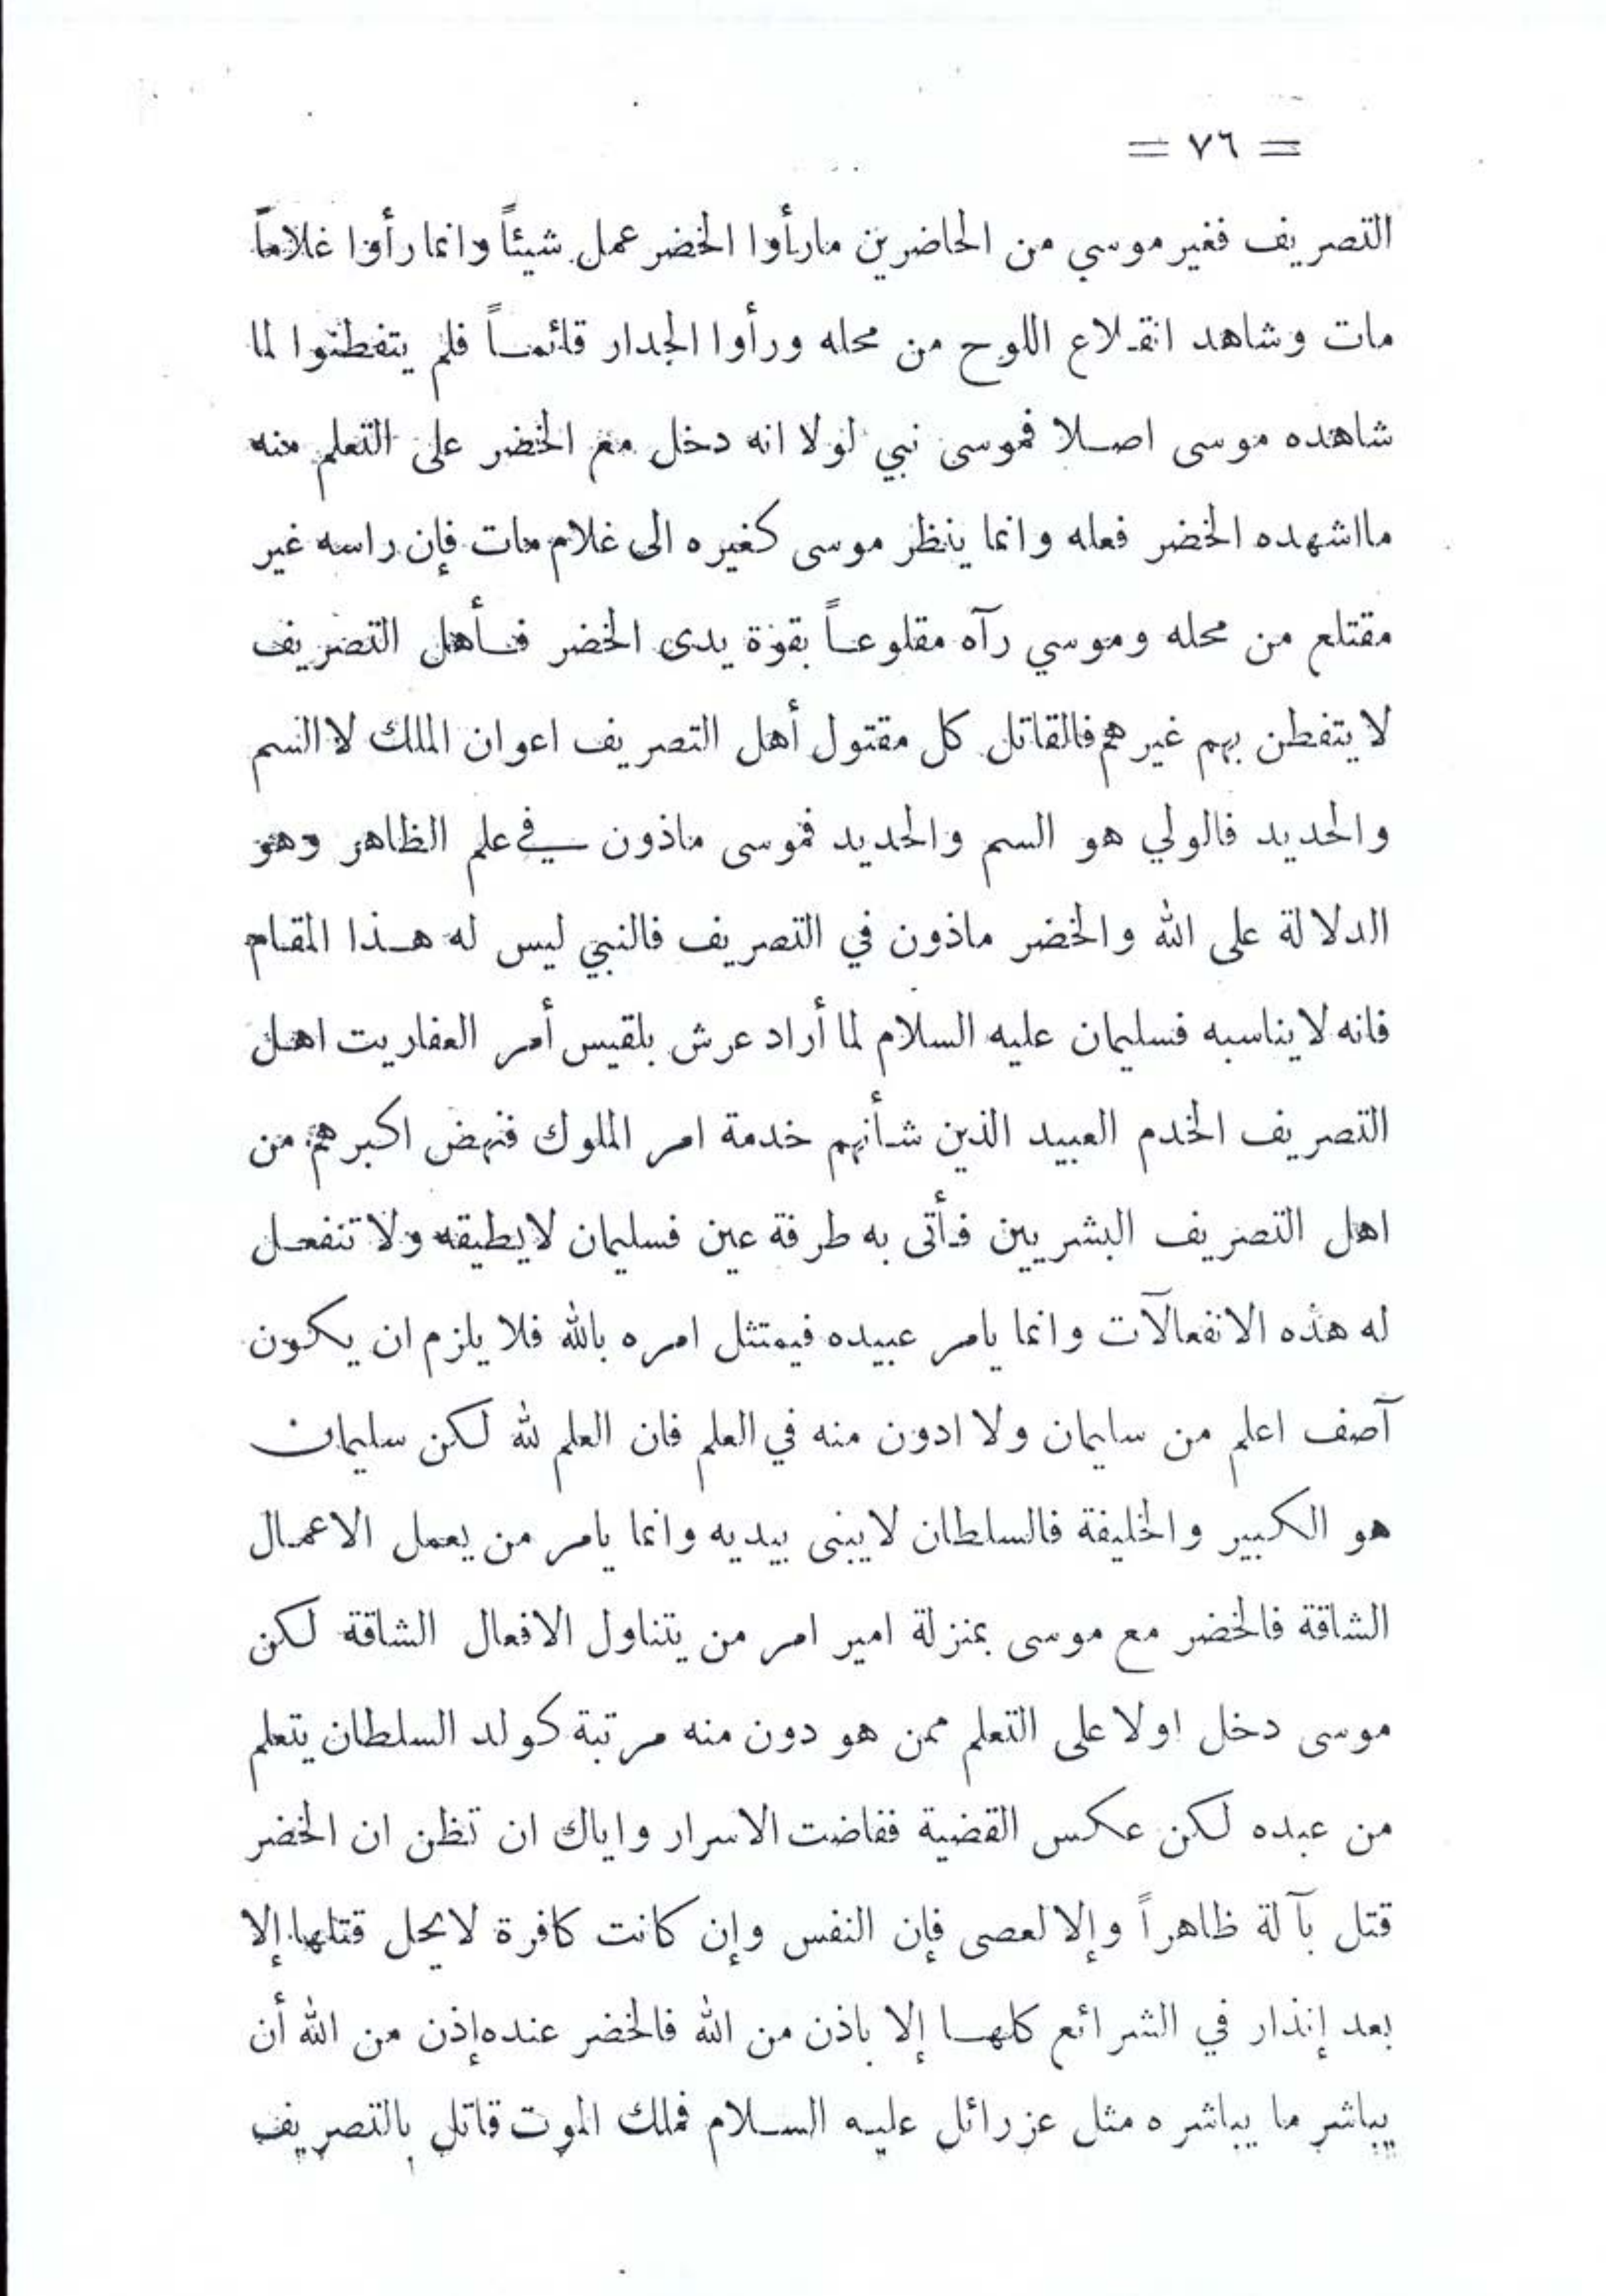 = ٧٦ =
التصريف فغير موسي من الحاضرين مارأوا الخضر عمل شيئاً وانما رأوا غلاماً
مات وشاهد انقلاع اللوح من محله ورأوا الجدار قائماً فلم يتفطنوا لما
شاهده موسى اصلا فموسى نبي لولا انه دخل مع الخضر على التعلم منه
مااشهده الخضر فعله وانما ينظر موسى كغيره الى غلام مات فإن راسه غير
مقتلع من محله وموسي رآه مقلوعاً بقوة يدى الخضر فأهل التصريف
لا يتفطن بهم غيرهم فالقاتل كل مقتول أهل التصريف اعوان الملك لا السم
والحديد فالولي هو السم والحديد فموسى ماذون في علم الظاهر وهو
الدلالة على الله والخضر ماذون في التصريف فالنبي ليس له هذا المقام
فانه لا يناسبه فسليمان عليه السلام لما أراد عرش بلقيس أمر العفاريت اهل
التصريف الخدم العبيد الذين شأنهم خدمة امر الملوك فنهض اكبرهم من
اهل التصريف البشريين فأتى به طرفة عين فسليمان لايطيقه ولا تنفعل
له هذه الانفعالآت وانما يامر عبيده فيمتثل امره بالله فلا يلزم ان يكون
آصف اعلم من سليمان ولا ادون منه في العلم فان العلم لله لكن سليمان
هو الكبير والخليفة فالسلطان لا يبنى بيديه وانما يامر من يعمل الاعمال
الشاقة فالخضر مع موسى بمنزلة امير امر من يتناول الافعال الشاقة لكن
موسى دخل اولا على التعلم ممن هو دون منه مرتبة كولد السلطان يتعلم
من عبده لكن عكس القضية ففاضت الاسرار واياك ان تظن ان الخضر
قتل بآلة ظاهراً وإلا لعصى فإن النفس وإن كانت كافرة لا يحل قتلها إلا
بعد إنذار في الشرائع كلها إلا باذن من الله فالخضر عنده إذن من الله أن
يباشر ما يباشره مثل عزرائل عليه السلام فملك الموت قاتل بالتصريف